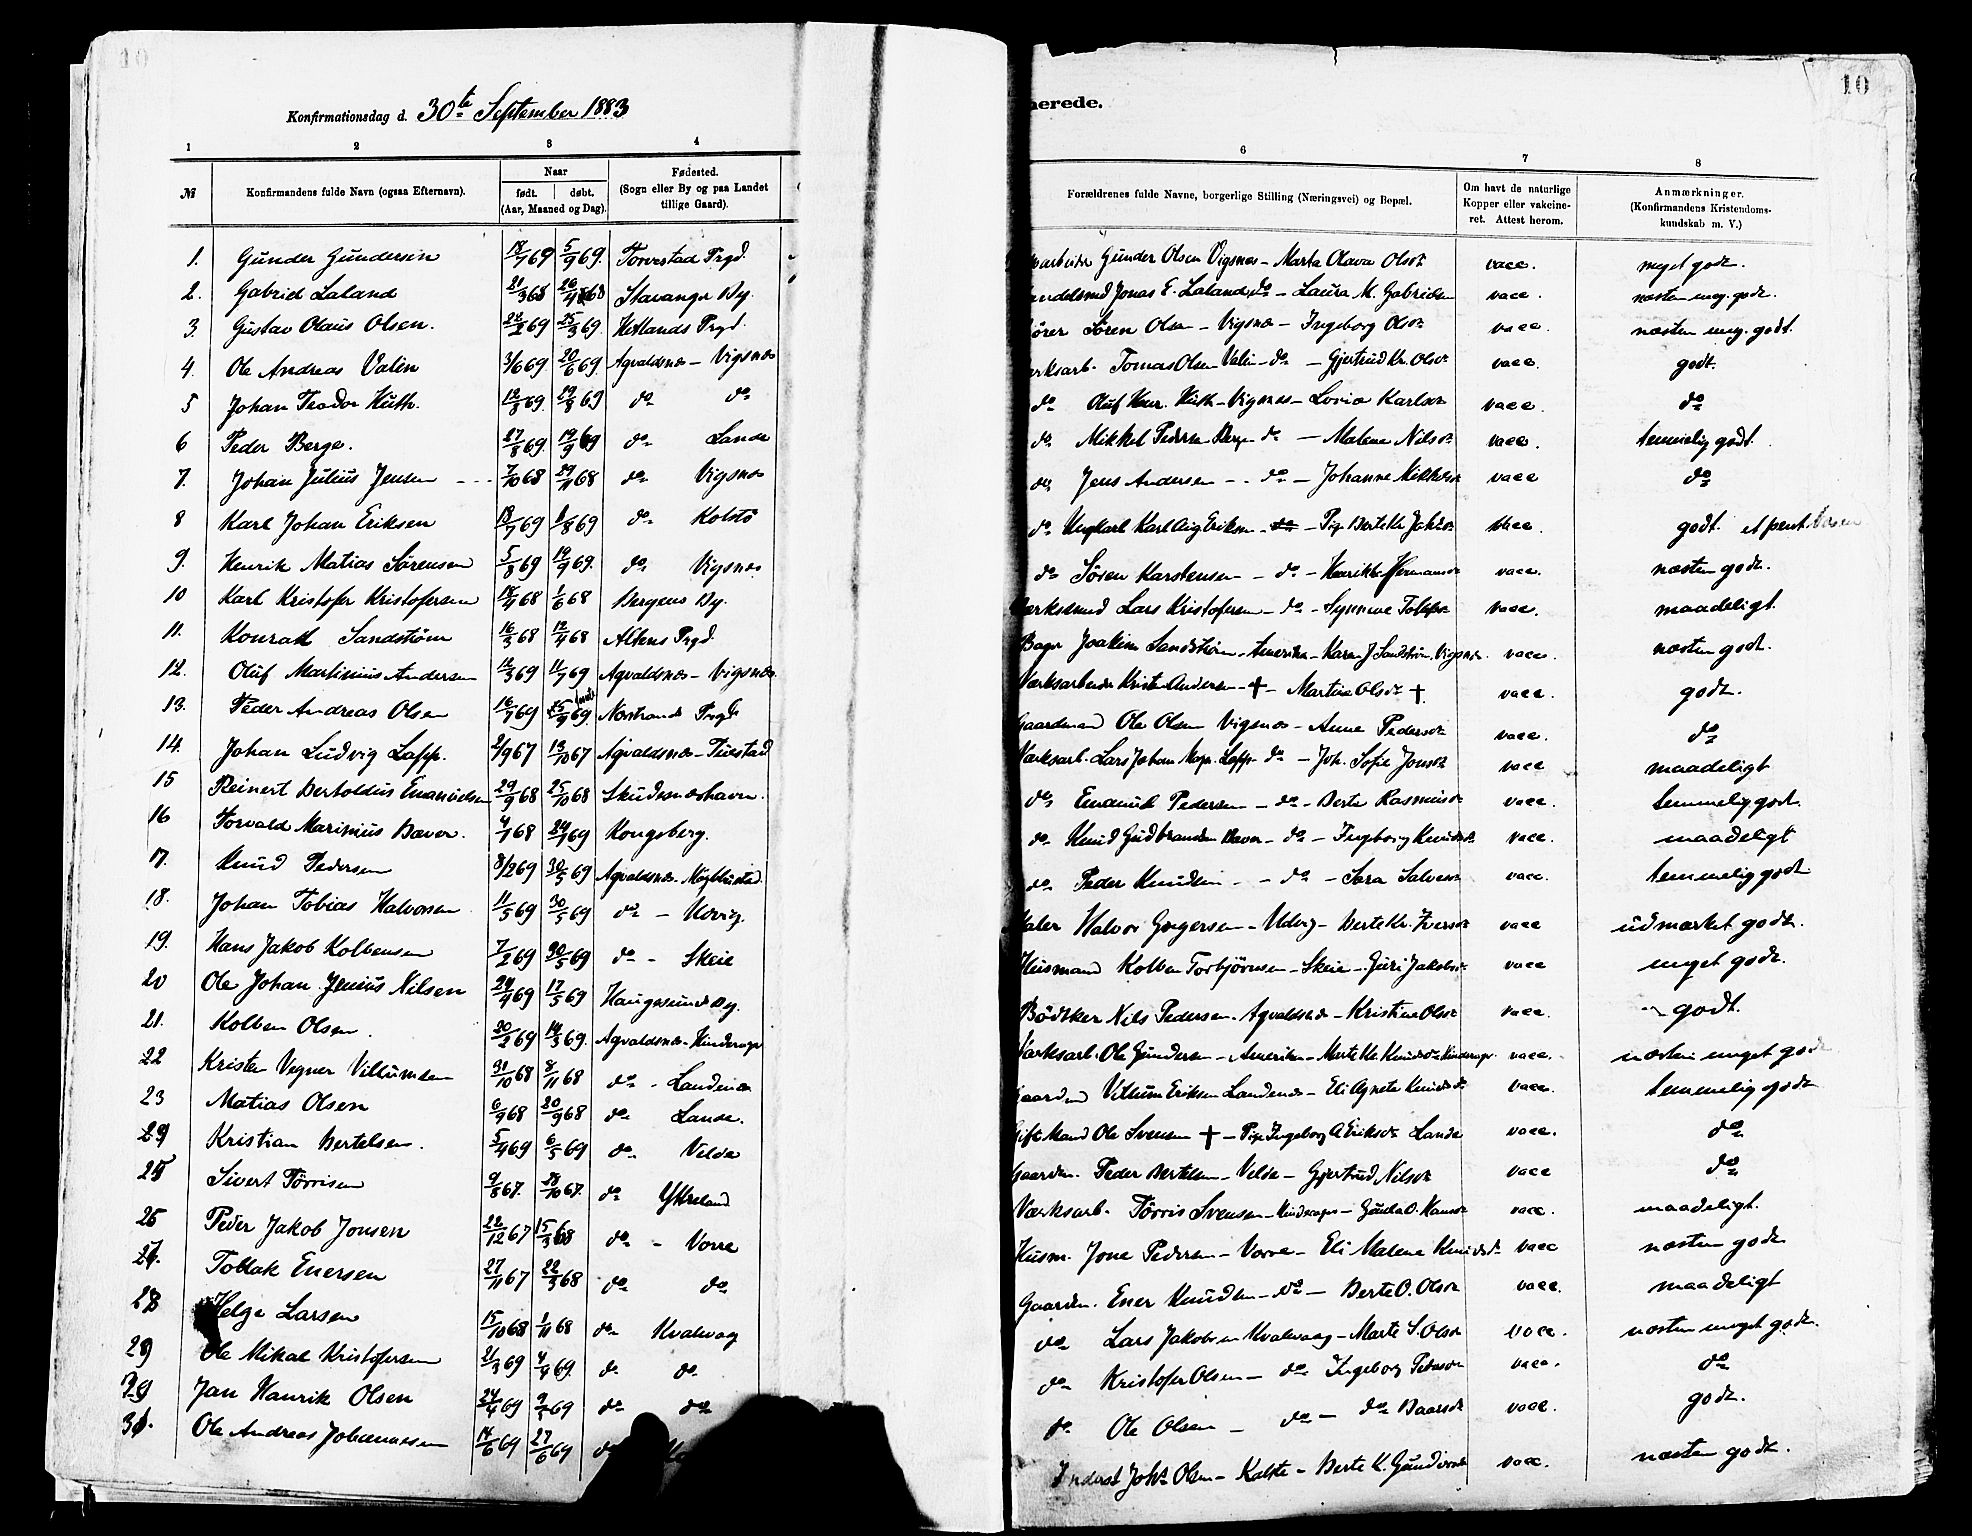 10
Konfirmationsdag d. 30te September 1883
nerede.
10
1 2 3 4 6 7 8
№
Konfirmandens fulde Navn (ogsaa Efternavn).
Naar
født. døbt.
(Aar, Maaned og Dag).
Fødested.
(Sogn eller By og paa Landet
tillige Gaard).
Forældrenes fulde Navne, borgerlige Stilling (Næringsvei) og Bopæl.
Om havt de naturlige
Kopper eller vakcine-
ret. Attest herom.
Anmærkninger.
(Konfirmandens Kristendoms-
kundskab m. V.)
1. Gunder Gundersen 18/1 69 5/9 69. Torvestad Prgd. Gunder Olsen Vigsnes - Marta Olava Olsdt vacc. meget godt.
2. Gabriel Laland 21/3 68 26/4 68 Stavanger By. Jonas E. Laland do - Laura M. Gabrielsen vacc. næsten meg. godt.
3. Gustav Olaus Olsen. 22/2 69 25/3 69. Hetlands Prgd. Sören Olsen - Vigsnes - Ingeborg Olsdt vacc. næsten meg. godt.
4. Ole Andreas Valen 3/6 69 20/6 69. Agvaldsnes - Vigsnes Tomas Olsen Valen - do - Gjertrud Kr. Olsdt vacc. godt.
5 Johan Teodor Huth. 12/8 69. 19/8 69 do do do Oluf Henr. Huth - Vigsnes - Lovise Karlsdt vacc. do
6 Peder Berge. 27/8 69. 19/9 69 do Lande do Mikkel Pedersen Berge do - Malene Nilsdt vacc. temmelig godt.
7. Johan Julius Jensen 7/10 68 29/11 68 do Vigsnes do Jens Andersen - do - Johanne Mikkelsdt vacc do
8 Karl Johan Eriksen 18/7 69 1/8 69 do Kolstö do Ungkarl Karl Aug Eriksen - do - Pige Berte Kr. Jakobsdt vacc godt.
9. Henrik Matias Sørensen 5/8 69 19/9 69. do Vigsnes do Sören Karstensen - do - Henrikke Hermansdt vacc. næsten godt.
10 Karl Kristofer Kristofersen 18/4 68 1/6 68 Bergens By. Lars Kristofersen - do - Synneve vacc. maadeligt.
11. Konrad Sandstöm 16/3 68 12/4 68 Altens Prgd. Bager Joakim Sandström - Amerika - Karen J Sandström, Vigsnes. vacc. næsten godt.
12. Oluf Martinius Andersen 12/3 69 11/7 69 Agvaldsnes - Vigsnes. Værksarbeider Kristen Andersen - † - Martine Olsdt † vacc. godt.
13. Peder Andreas Olsen 16/7 69 25/9 69. Nerstrands Prgd. Gaardmand Ole Olsen Vigsnes - Anne Pedersdt vacc. do
14. Johan Ludvig Lapp. 2/9 67 13/10 67 Agvaldsnes - Tuestad Værksarb. Lars Johan Lapp - do - Joh. Sofie Jonsdt vacc maadeligt
15 Reinert Bertoldus Emanuelsen 29/9 68 25/10 68 Skudesneshavn. do Emanuel Pedersen - do - Berte Rasmusdt vacc. temmelig godt.
16 Torvald Marinius Baver. 4/1 68 24/1 69 Kongsberg. do Knud Gudbrandsen Baver - do - Ingeborg Knudsdt vacc. maadeligt
17. Knud Pedersen 8/2 69 30/5 69 Agvaldsnes. do Peder Knudsen - do - Sara Salvesdt vacc. temmelig godt
18. Johan Tobias Halvorsen 11/5 69 30/5 69 do - Udvig. Maler Halvor Gregersen - Udvig - Berte Kr. Iversdt vacc udmærket godt.
19. Hans Jakob Kolbensen 7/2 69 30/5 69 do - Skeie Husmand Kolben Torbjörnsen - Skeie - Guri Jakobsdt vacc meget godt.
20 Ole Johan Jenius Nilsen 24/4 69 17/5 69 Haugesunds By. Bödtker Nils Pedersen. Agvaldsnes - Kristine Olsdt vacc. godt.
21. Kolben Olsen. 20/2 69 14/3 69. Agvaldsnes - Hinderager Værksarb. Ole Gundersen - Amerika - Marte Kr. Knudsdt Hinderager. vacc. næsten meget godt
22 Kristen Vegner Villumsen 31/10 68 8/11 68 do - Landenes Gaardmd Villum Eriksen Landenes - Eli Agnete Knudsdt vacc. temmelig godt
23 Matias Olsen 6/9 68 20/9 68 do Lande. Gift Mand Ole Svensen † - Pige Ingeborg A Eriksdt Lande vacc. do
24 Kristian Bertelsen. 5/4 69 6/5 69 do Velde Gaardm. Peder Bertelsen - Velde - Gjertrud Nilsdt vacc do
25 Sivert Törrisen 9/8 67. 18/10 67. do Ytreland Værksarb. Törris Svensen - Hinderager - Gunla O. Hansdt vacc. maadeligt.
26 Peder Jakob Jonsen 22/12 67 15/3 68 do - Vorre Husm. Jone Pedersen - Vorre - Eli Malene Knudsdt vacc næsten godt
27. Tollak Enersen 27/11 67 22/3 68 do do Gaardm. Ener Knudsen - do - Berte O. Olsdt vacc. maadeligt
28 Helge Larsen 15/10 68 1/11 68 do Kvalvag do Lars Jakobsen Kvalvaag - Marte S. Olsdt vacc. næsten meget godt.
29 Ole Mikal Kristofersen 21/3 69 4/4 69. do do do Kristofer Olsen - do Ingeborg Pedersdt vacc. do
30 Jan Hanrik Olsen 24/4 69 9/5 69 do do do Ole Olsen - do - do Baarsdt vacc. godt.
31. Ole Andreas Johannessen 14/6 69 27/6 69 do Inderst Johs Olsen - Kalstø - Berte K. Gundersdt vacc næsten godt.